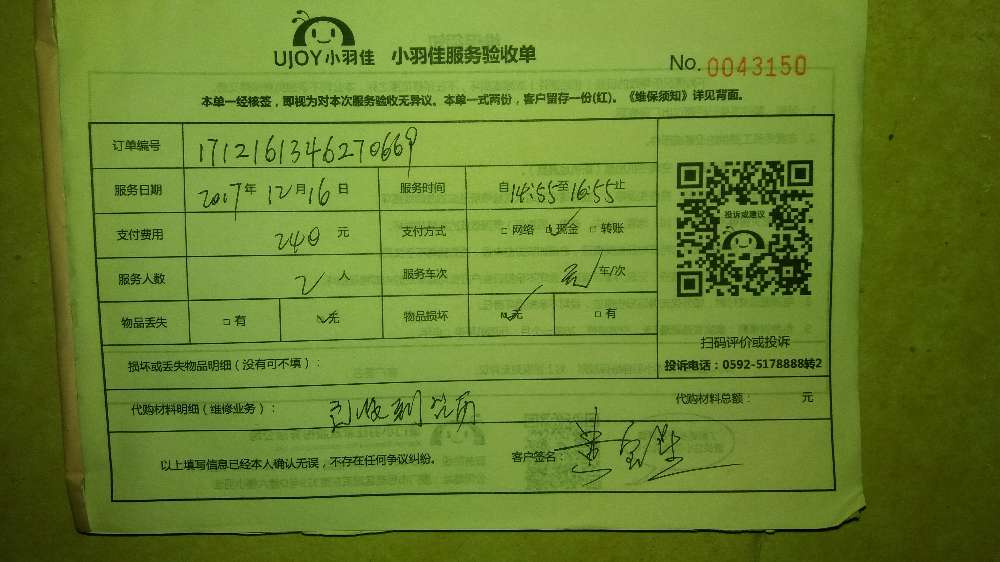 UJOY小羽佳 小羽佳服务验收单
No. 0043150
本单一经核签，即视为对本次服务验收无异议。本单一式两份，客户留存一份(红)。《维保须知》详见背面。
订单编号 1712161346270669
服务日期 2017年 12月16日 服务时间 自14:55至16:55止
支付费用 240 元 支付方式 □网络 ☑现金 □转账
服务人数 2 人 服务车次 车/次
物品丢失 □有 ☑无 物品损坏 ☑无 □有
投诉或建议
扫码评价或投诉
投诉电话：0592-5178888转2
损坏或丢失物品明细（没有可不填）：
代购材料明细（维修业务）： 代购材料总额： 元
以上填写信息已经本人确认无误，不存在任何争议纠纷。 客户签名：